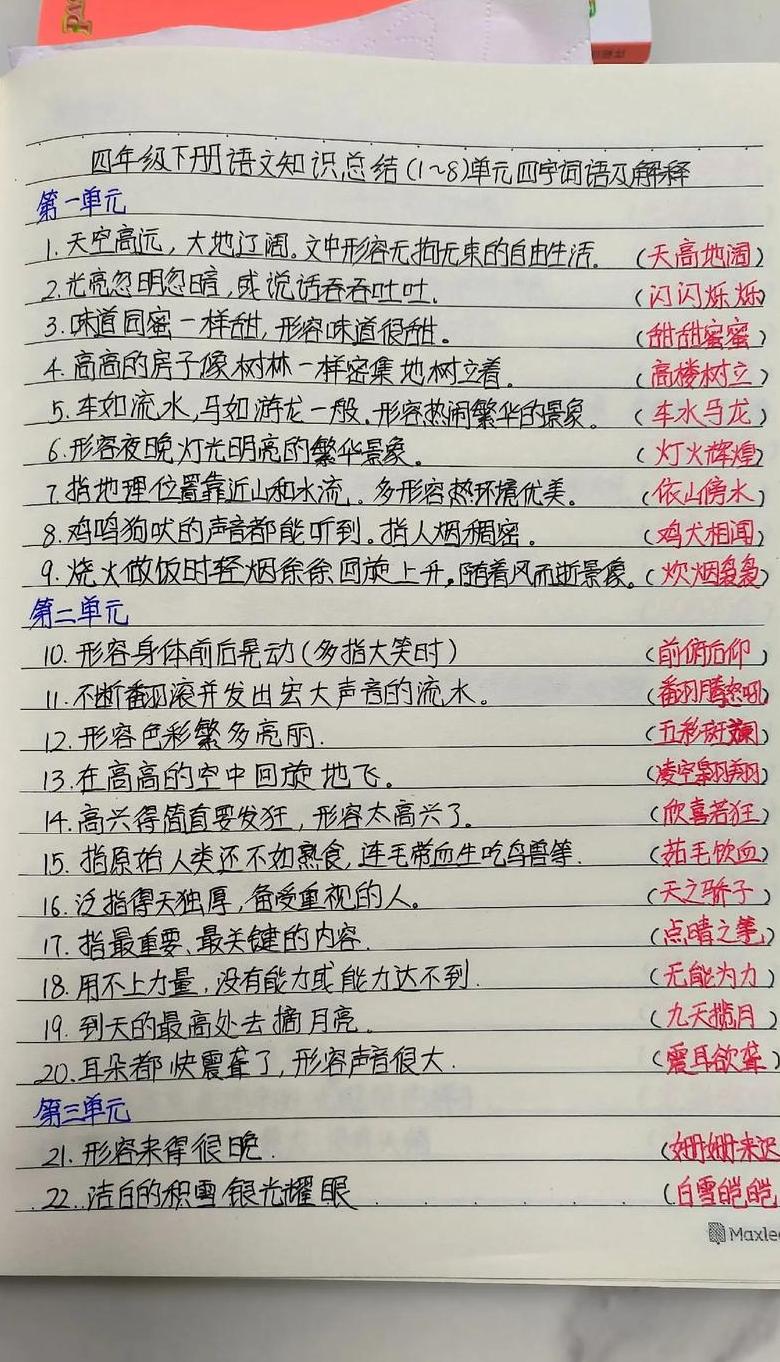 四年级下册语文知识总结(1~8)单元四字词语及解释
第一单元
1.天空高远，大地辽阔。文中形容无拘无束的自由生活。（天高地阔）
2.光亮忽明忽暗，或说话吞吞吐吐。（闪闪烁烁）
3.味道同蜜一样甜，形容味道很甜。（甜甜蜜蜜）
4.高高的房子像树林一样密集地树立着。（高楼树立）
5.车如流水，马如游龙一般.形容热闹繁华的景象。（车水马龙）
6.形容夜晚灯光明亮的繁华景象。（灯火辉煌）
7.指地理位置靠近山和水流。多形容热环境优美。（依山傍水）
8.鸡鸣狗吠的声音都能听到。指人烟稠密。（鸡犬相闻）
9.烧火做饭时轻烟徐徐回旋上升，随着风而逝景象。（炊烟袅袅）
第二单元
10.形容身体前后晃动(多指大笑时)（前俯后仰）
11.不断翻滚并发出宏大声音的流水。（翻腾怒吼）
12.形容色彩繁多亮丽.（五彩斑斓）
13.在高高的空中回旋地飞。（凌空翱翔）
14.高兴得简直要发狂，形容太高兴了。（欣喜若狂）
15.指原始人类还不如熟食，连毛带血生吃鸟兽等.（茹毛饮血）
16.泛指得天独厚，备受重视的人。（天之骄子）
17.指最重要、最关键的内容.（点睛之笔）
18.用不上力量，没有能力或能力达不到.（无能为力）
19.到天的最高处去摘月亮。（九天揽月）
20.耳朵都快震聋了，形容声音很大.（震耳欲聋）
第三单元
21.形容来得很晚.（姗姗来迟
22.洁白的积雪银光耀眼（白雪皑皑